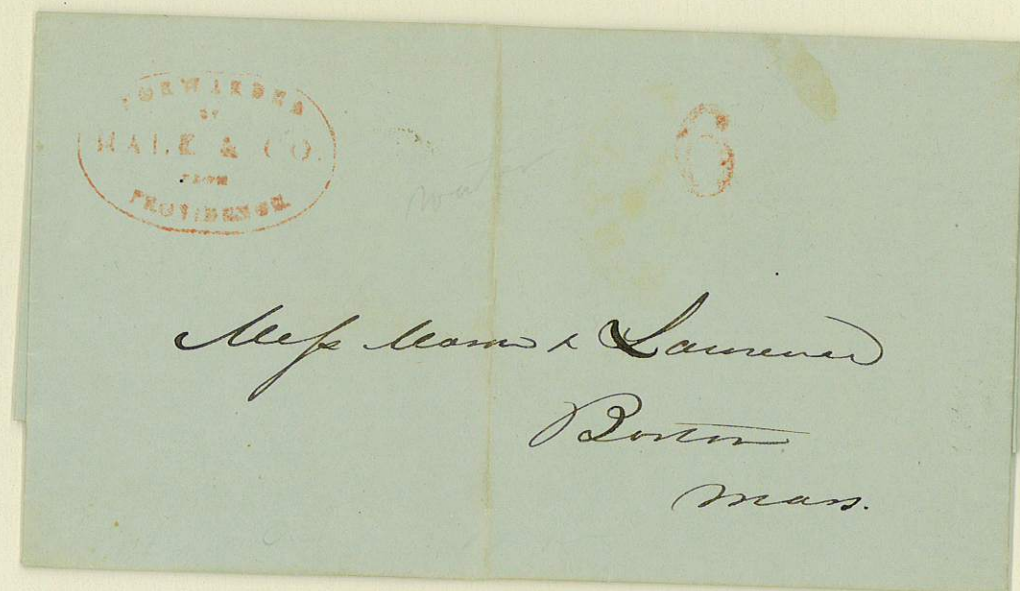 FORWARDED
BY
HALE & CO.
FROM
PROVIDENCE.
6
Mess Mason & Lawrence
Boston
Mass.